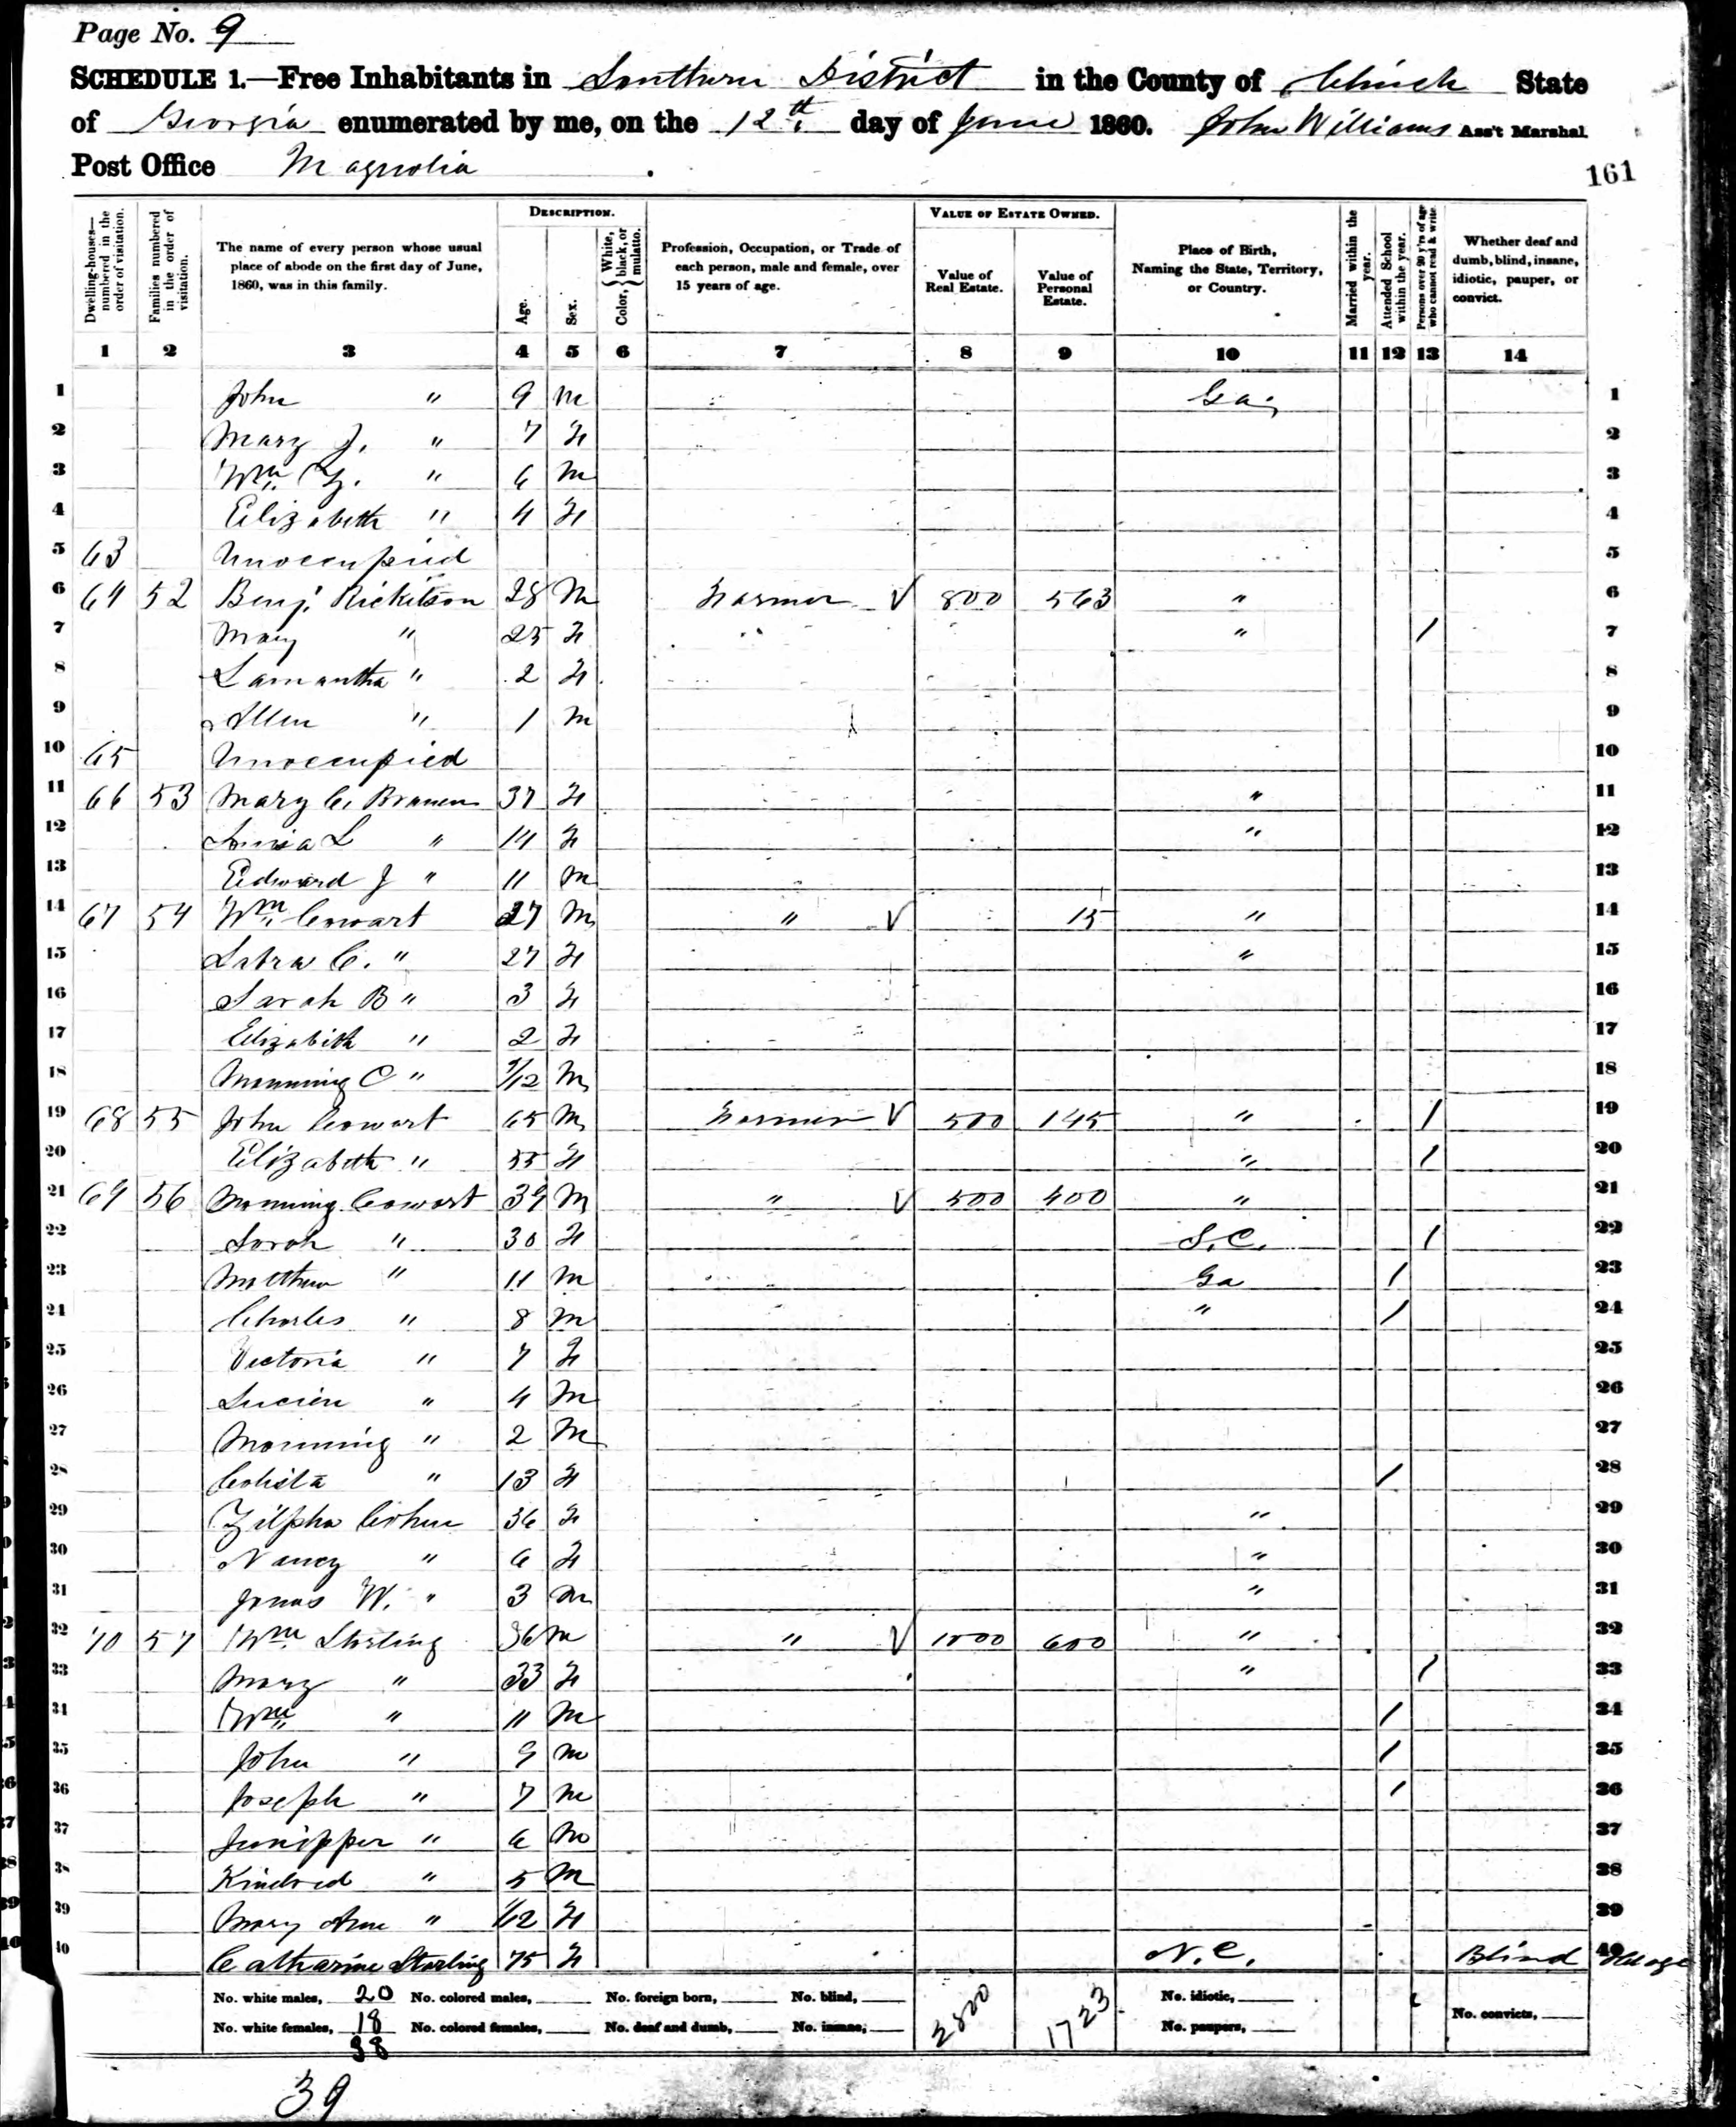 Page No. 9
SCHEDULE 1.—Free Inhabitants in Southern District in the County of Clinch State
of Georgia enumerated by me, on the 12th day of June 1860. John Williams Ass't Marshal.
Post Office Magnolia .
161
Dwelling-houses—numbered in the order of visitation.
Families numbered in the order of visitation.
The name of every person whose usual place of abode on the first day of June, 1860, was in this family.
DESCRIPTION.
Age.
Sex.
Color, { White, black, or mulatto.
Profession, Occupation, or Trade of each person, male and female, over 15 years of age.
VALUE OF ESTATE OWNED.
Value of Real Estate.
Value of Personal Estate.
Place of Birth, Naming the State, Territory, or Country.
Married within the year.
Attended School within the year.
Persons over 20 y'rs of age who cannot read & write.
Whether deaf and dumb, blind, insane, idiotic, pauper, or convict.
1 2 3 4 5 6 7 8 9 10 11 12 13 14
1 John " 9 m Ga. 1
2 Mary J. " 7 F 2
3 Wm " 6 m 3
4 Elizabeth " 4 F 4
5 63 Unoccupied 5
6 64 52 Benj. Rickitson 28 m Farmer √ 800 563 " 6
7 Mary " 25 F " / 7
8 Samantha " 2 F 8
9 Allen " 1 m 9
10 65 Unoccupied 10
11 66 53 Mary C. 37 F " 11
12 L " 14 F " 12
13 Edward J " 11 m 13
14 67 54 Wm Cowart 27 m " √ 15 " 14
15 C. " 27 F " 15
16 Sarah B " 3 F 16
17 Elizabeth " 2 F 17
18 Manning C " /12 m 18
19 68 55 John Cowart 65 m Farmer √ 500 145 " / 19
20 Elizabeth " 55 F " / 20
21 69 56 Manning Cowart 39 m " √ 500 400 " 21
22 Sarah " 30 F S.C. / 22
23 Matthew " 11 m Ga / 23
24 Charles " 8 m " / 24
25 Victoria " 7 F 25
26 Lucien " 4 m 26
27 Manning " 2 m 27
28 Colista " 13 F / 28
29 Zilpha 36 F " 29
30 Nancy " 6 F " 30
31 Jonas W. " 3 m " 31
32 70 57 Wm Starling 36 m " √ 1000 600 " 32
33 Mary " 33 F " / 33
34 Wm " 11 m / 34
35 John " 9 m / 35
36 Joseph " 7 m / 36
37 Junipper " 6 m 37
38 Kindred " 5 m 38
39 Mary Ann " /12 F 39
40 Catharine Starling 75 F N.C. Blind 40 Old age
No. white males, 20 No. colored males, No. foreign born, No. blind, 2800 1723 No. idiotic,
No. white females, 18 No. colored females, No. deaf and dumb, No. insane, No. paupers, No. convicts,
38
39